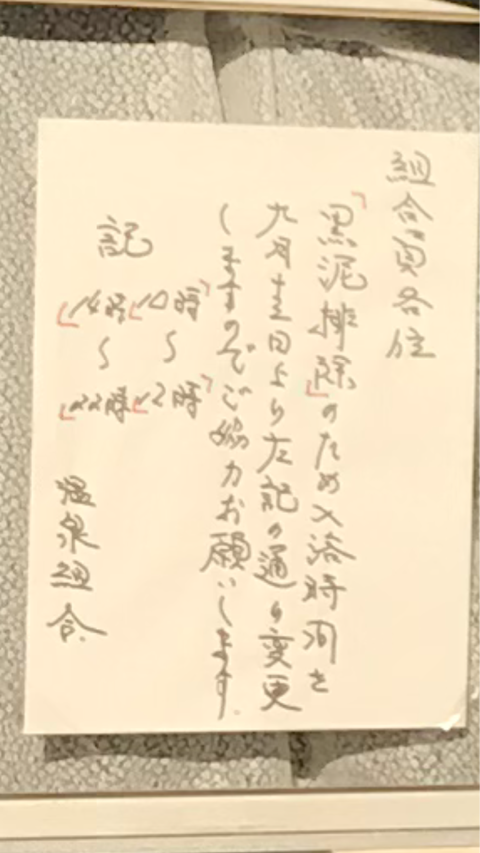 組合員各位
「黒泥排除」のため入浴時間を
九月十五日より左記の通り変更
しますのでご協力お願いします.
記
「10時〜12時」
「14時〜22時」
温泉組合.